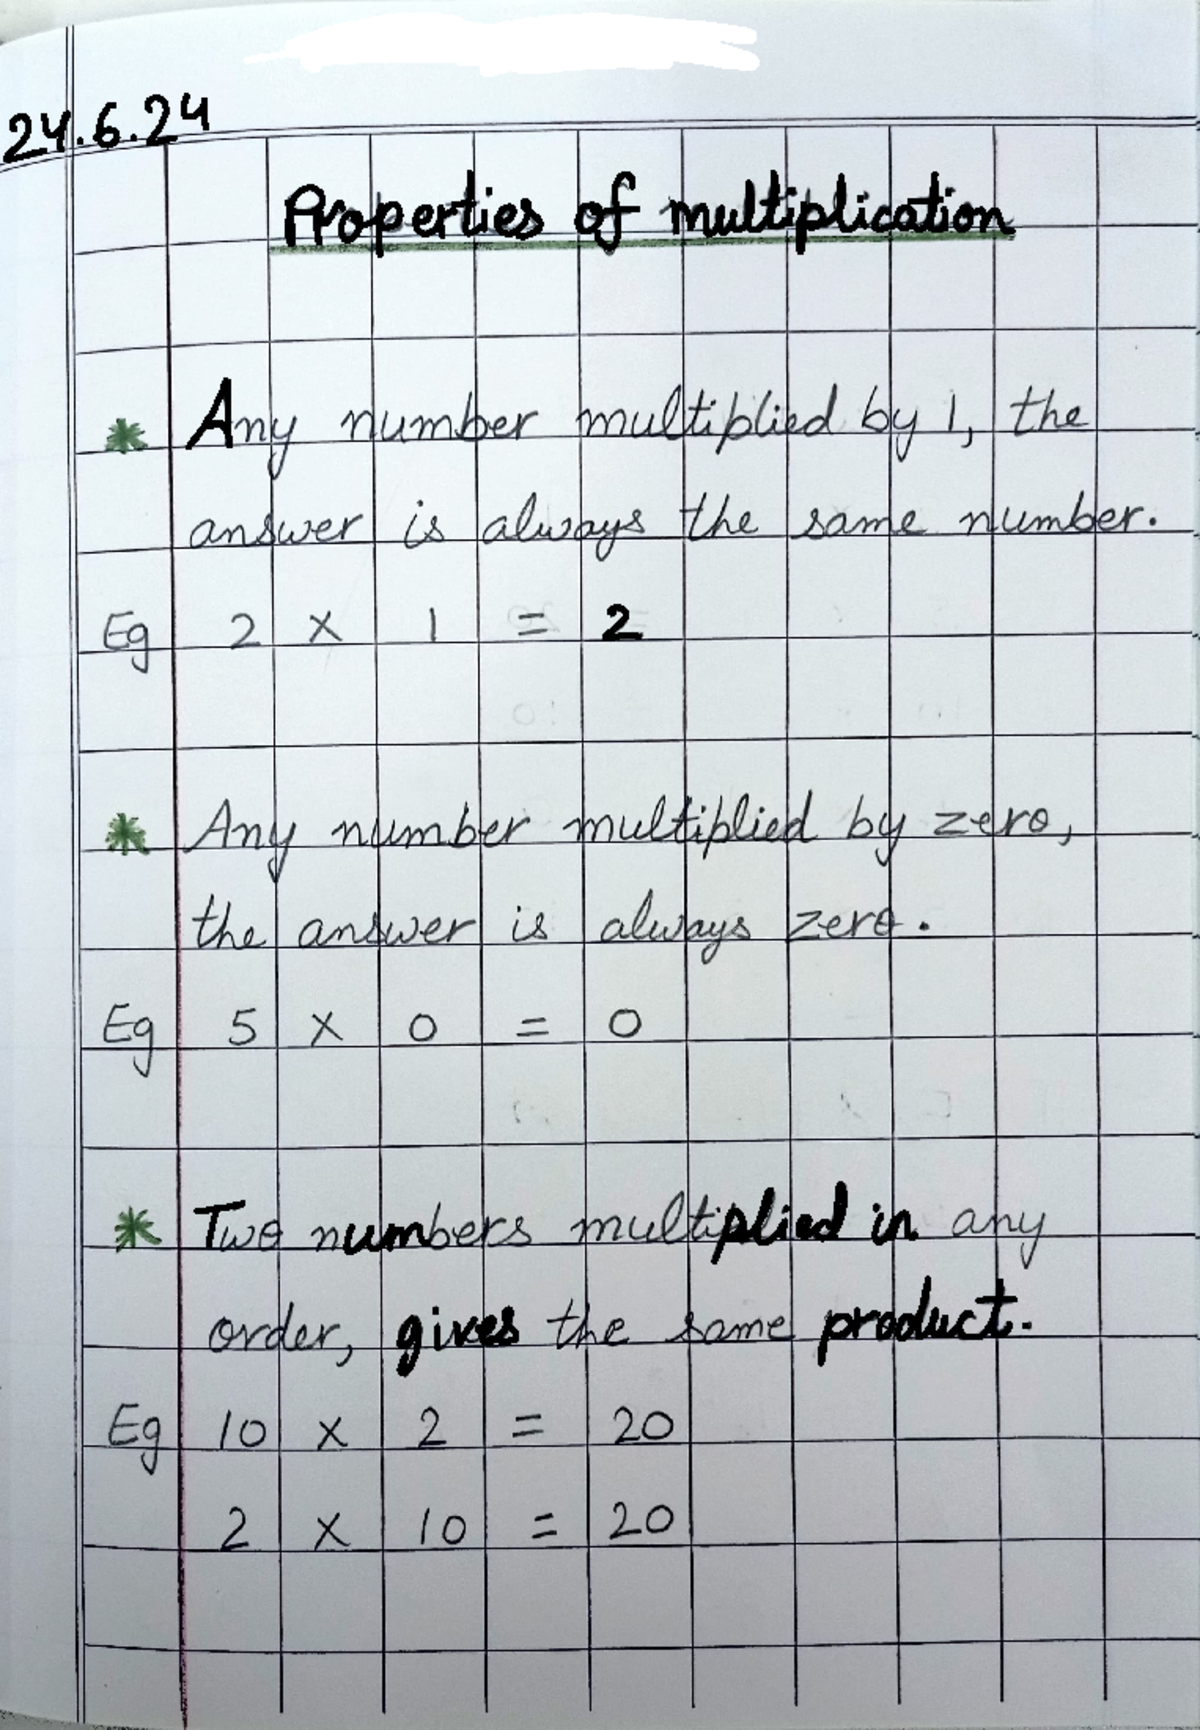 24.6.24
Properties of multiplication
* Any number multiplied by 1, the
answer is always the same number.
Eg 2 x 1 = 2
* Any number multiplied by zero,
the answer is always zero.
Eg 5 x 0 = 0
* Two numbers multiplied in any
order, gives the same product.
Eg 10 x 2 = 20
2 x 10 = 20